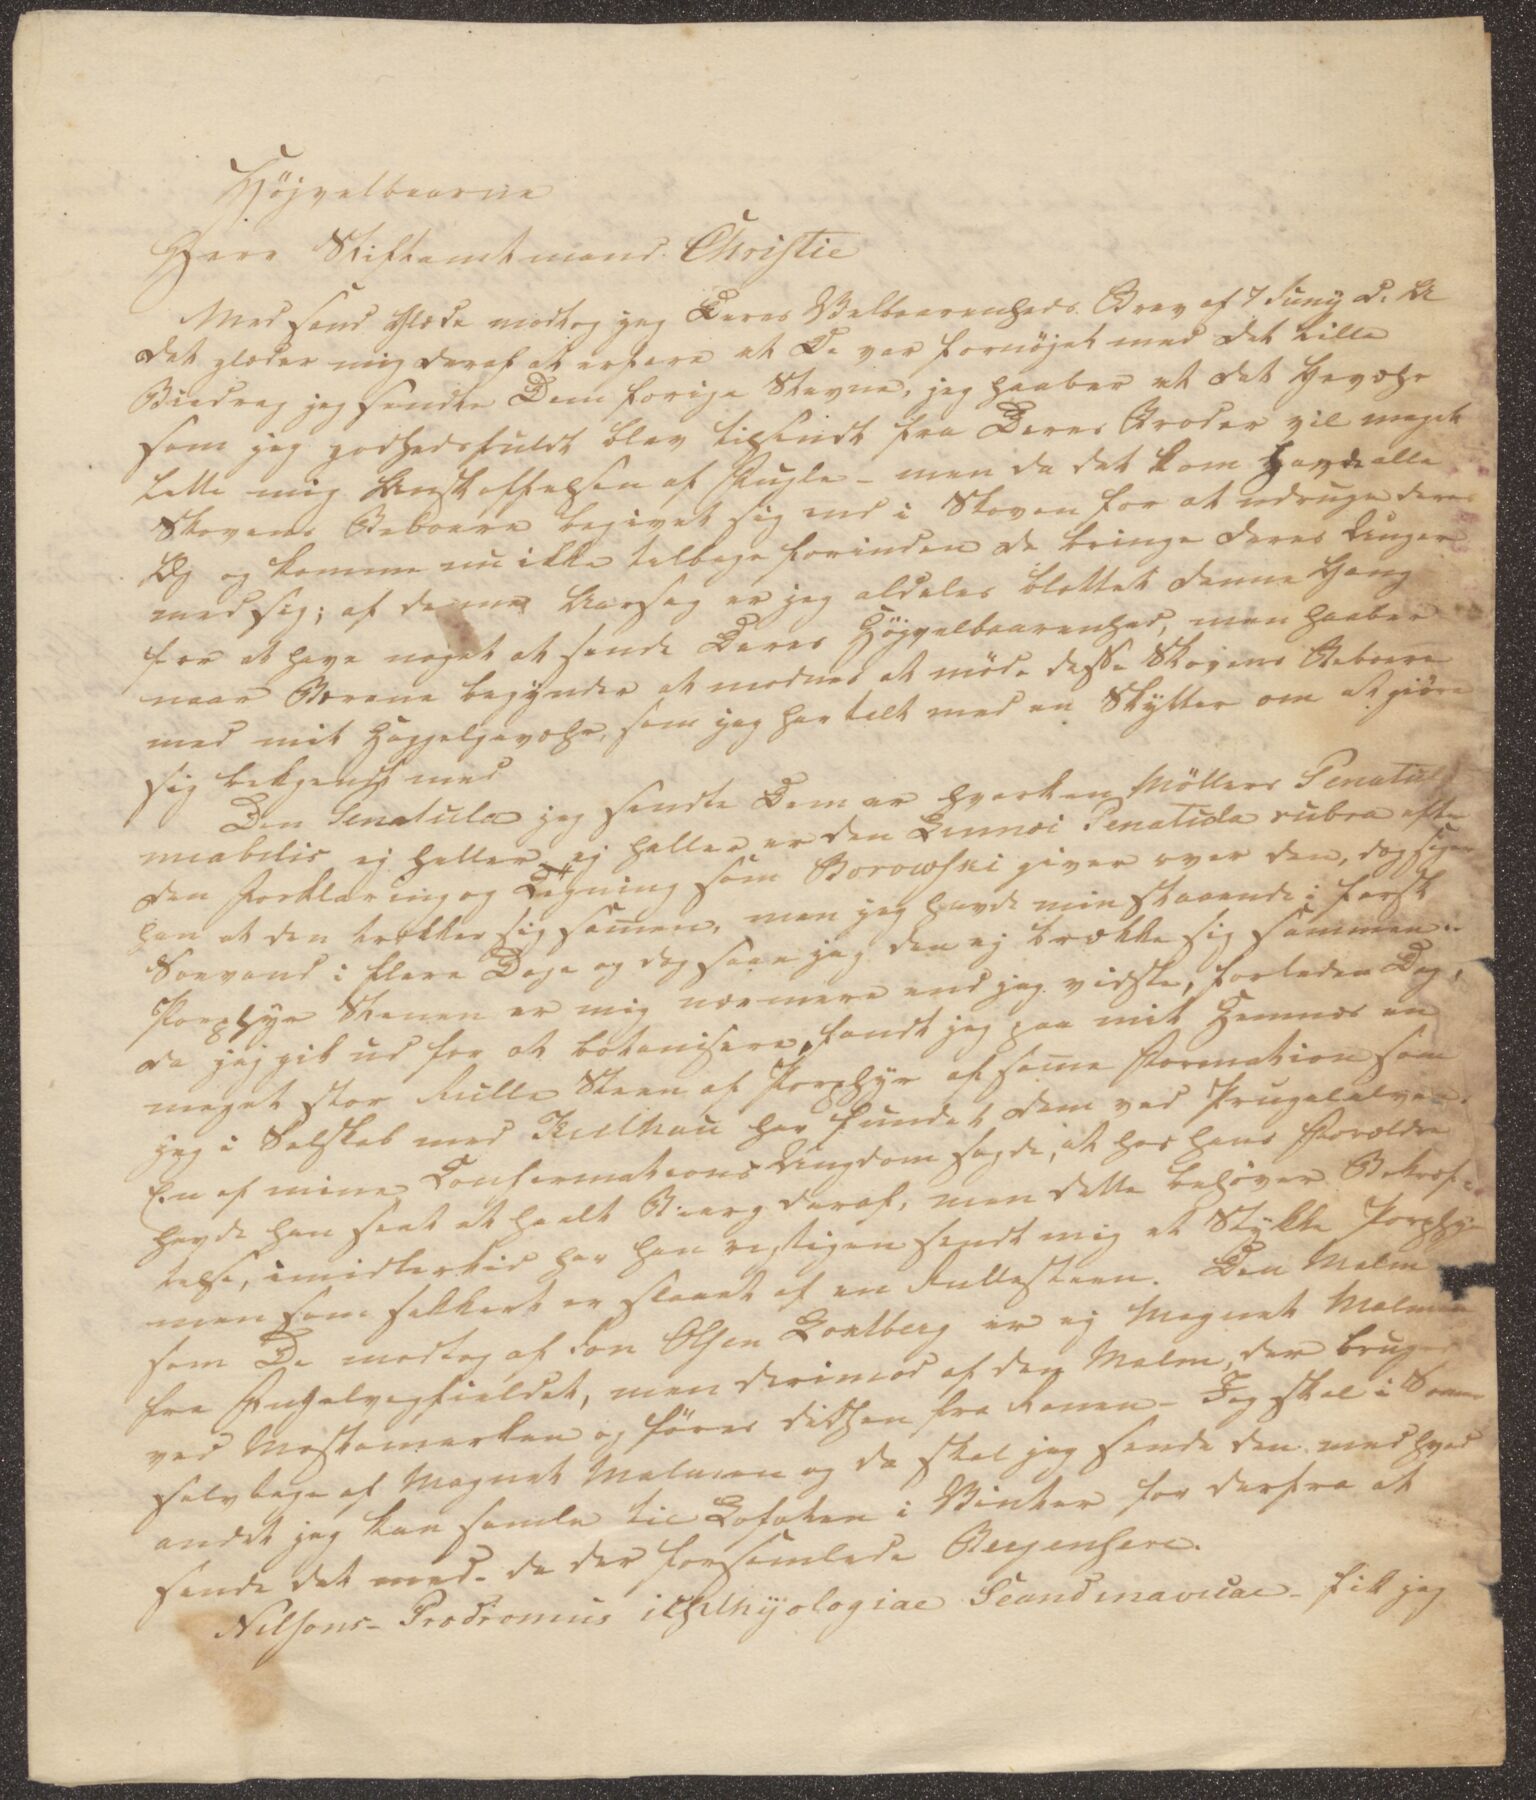 Højvelbaarne
Herr Stiftamtmand Christie
Med sand Glæde modtog jeg Deres Velbaarenheds Brev af 7 Juny d. A
det glæder mig deraf at erfare at De var fornøjet med det lille
Biedrag jeg sendte Dem forige Stævne, jeg haaber at det Gevæhr
som jeg godhedsfuldt blev tilsendt fra Deres Broder vil meget
lette mig Anskaffelsen af Fugle – men da det kom havde alle
Skovens Beboere begivet sig ind i Skoven for at udruge deres
Æg og komme nu ikke tilbage forinden de bringe deres Unger
med sig; af denne Aarsag er jeg aldeles blottet denne Gang
for at have noget at sende Deres Højvelbaarenhed, men haaber
naar Bærene begynder at modnes at møde disse Skovens Beboere
med mit Haggelgevæhr, som jeg har talt med en Skytter om at giøre
sig bekjendt med
Den Penatula jeg sendte Dem er hverken Möllers Penatula
mirabilis ej heller ej heller er den Linnæi Penatula rubra efter
den Forklaring og Tegning som Borowski giver over den, dog siger
han at den trækker sig samen, men jeg havde min staaende i fersk
Søevand i flere Dage og dog saae jeg den ej trække sig sammen.
Porphyr Stenen er mig nærmere end jeg vidste, forleden Dag,
da jeg gik ud for at botanisere, fandt jeg paa mit Hemnæs en
meget stor Rulle Steen af Porphyr af same Formation som
jeg i Selskab med Keilhau har fundet dem ved Prugelelven.
En af mine Confermations Ungdom sagde, at hos hans Forældre
havde han seet et heelt Bierg deraf, men dette behøver Bekræf-
telse, imidlertid har han rigtigen sendt mig et Stykke Porphyr
men som sikkert er slaaet af en Rullesteen. Den Malm
som De modtog af Jon Olsen Qvalberg er ej Magnet Malmen
fra fieldet, men derimod af den Malm, der bruges
ved Mostamarken og føres didhen fra Ranen – Jeg skal i Somer
selv tage af Magnet Malmen og da skal jeg sende den med hvad
andet jeg kan samle til Lofoten i Vinter for derfra at
sende det med de der forsamlede Bergensere.
Nilsons – Prodromus ichthyologiae Scandinavicae – fik jeg